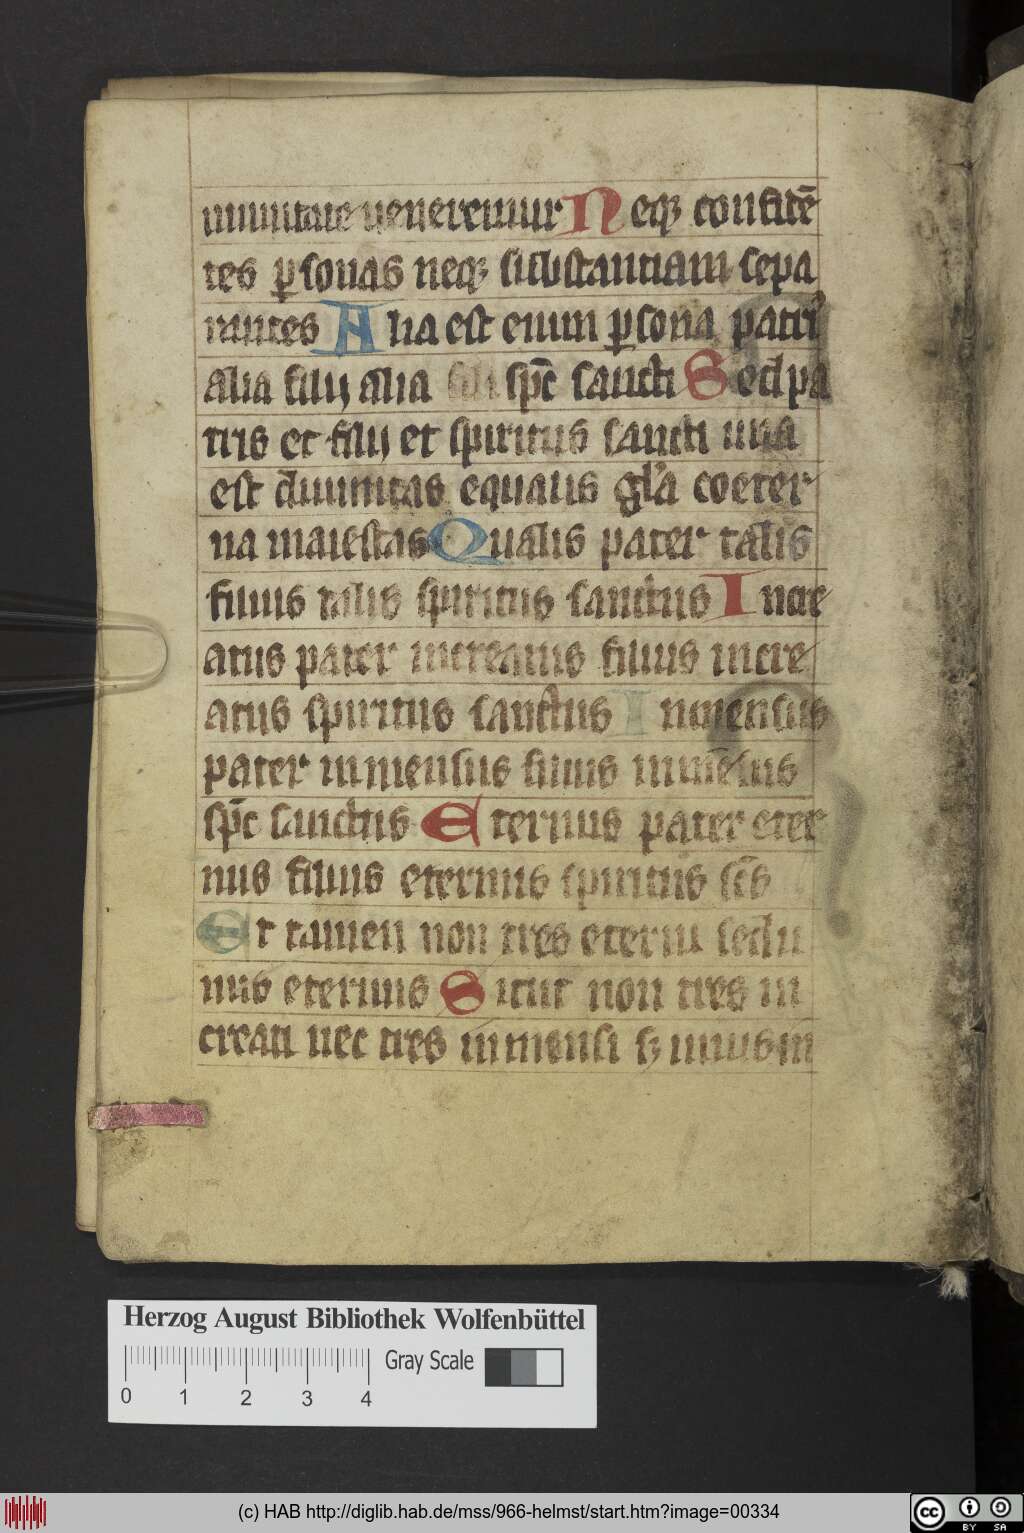 unnitate ueneremur Neqꝫ confitē
tes ꝑsonas neqꝫ substantiam sepa
rantes Alia est enim ꝑsona patri᷒
alia filij alia fili sp̄c sancti Sed pa
tris et filij et spiritus sancti una
est diuinitas equalis gl̓a coeter
na maiestas Qualis pater talis
filius talis spiritus sanctus Incre
atus pater increatus filius incre
atus spiritus sanctus Inmensus
pater inmensus filius inmēsus
sp̄c sanctus Eternus pater eter
nus filius eternus spiritus sc̄s
Et tamen non tres eterni sed u
nus eternus Sicut non tres in
creati nec tres inmensi sꝫ unus in
Herzog August Bibliothek Wolfenbüttel
Gray Scale
0 1 2 3 4
(c) HAB http://diglib.hab.de/mss/966-helmst/start.htm?image=00334
cc BY SA